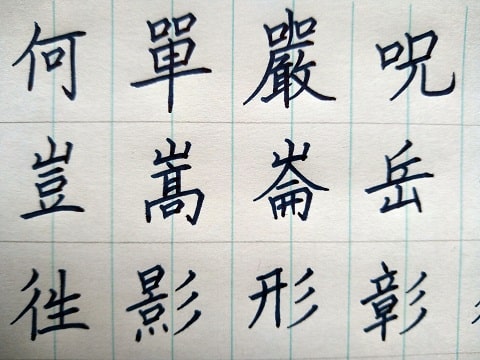 何單嚴呪
豈嵩崙岳
徃影形彰